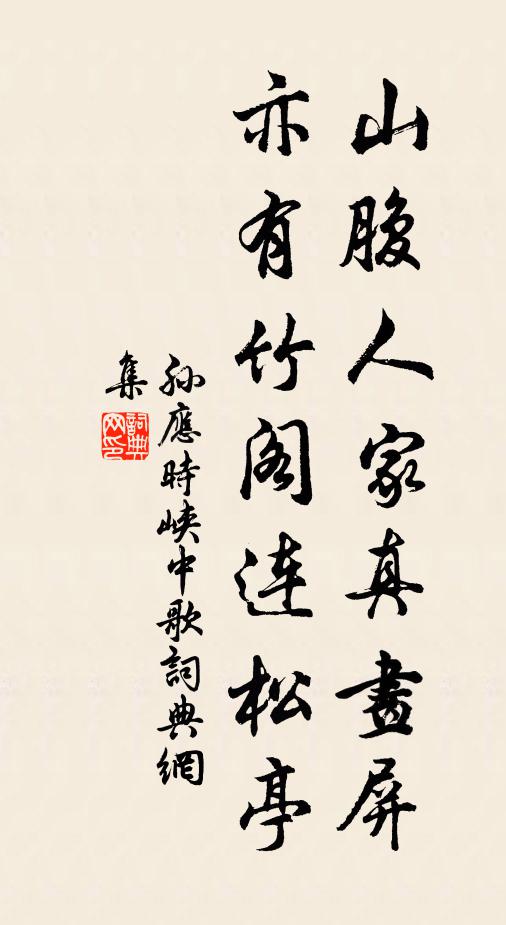 山腹人家真畫屏
亦有竹阁連松亭
孙應時峡中歌詞典網
集
詞典网印